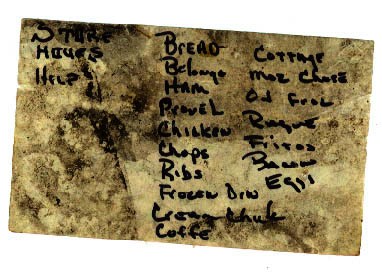 STORE
HOURS
HELP
BREAD
Bologa
HAM
Provel
Chicken
Chops
Ribs
Frozen Din
Cream Chuk
Coffe
Cottage
Moz Cheese
Rague
Fritos
Bacon
Eggs